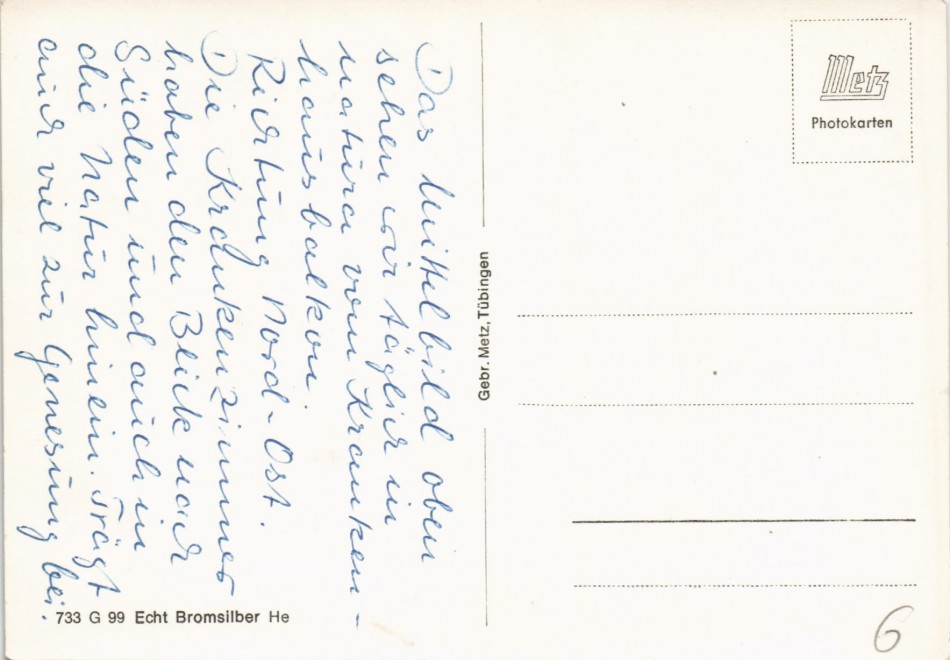 Das Mittelbild oben
sehen wir täglich in
natura vom Kranken-
hausbalkon.
Richtung Nord-Ost.
Die Krankenzimmer
haben den Blick nach
Süden und auch in
die Natur hinein. Trägt
auch viel zur Genesung bei.
733 G 99 Echt Bromsilber He
Gebr. Metz, Tübingen
Metz
Photokarten
6